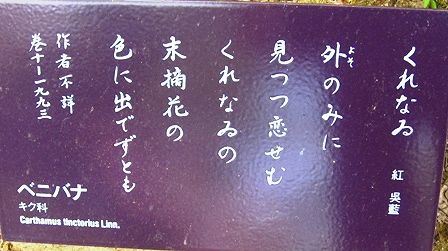 くれなゐ 紅 呉藍
外のみに
よそ
見つつ恋せむ
くれなゐの
末摘花の
色に出でずとも
作者不詳
巻十ー一九九三
ベニバナ
キク科
Carthamus tinctorius Linn.